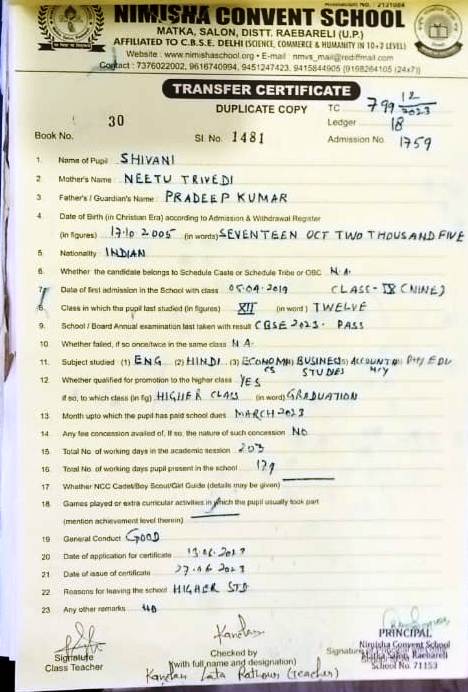 Affiliation No. 2131084
NIMISHA CONVENT SCHOOL
MATKA, SALON, DISTT. RAEBARELI (U.P.)
AFFILIATED TO C.B.S.E. DELHI (SCIENCE, COMMERCE & HUMANITY IN 10+2 LEVEL)
Website : www.nimishaschool.org • E-mail : nmvs_mail@rediffmail.com
Contact : 7376022002, 9616740994, 9451247423, 9415844905 (9198264105 (24x7))
TRANSFER CERTIFICATE
DUPLICATE COPY TC 799 12/2023
Book No. 30 Sl. No. 1481 Ledger 18
Admission No. 1759
1. Name of Pupil SHIVANI
2. Mother's Name NEETU TRIVEDI
3. Father's / Guardian's Name PRADEEP KUMAR
4. Date of Birth (in Christian Era) according to Admission & Withdrawal Register
(in figures) 17.10.2005 (in words) SEVENTEEN OCT TWO THOUSAND FIVE
5. Nationality INDIAN
6. Whether the candidate belongs to Schedule Caste or Schedule Tribe or OBC N.A.
7. Date of first admission in the School with class 05.04.2019 CLASS-IX (NINE)
8. Class in which the pupil last studied (in figures) XII (in word) TWELVE
9. School / Board Annual examination last taken with result CBSE 2023. PASS
10. Whether failed, if so once/twice in the same class N A.
11. Subject studied (1) ENG (2) HINDI (3) ECONOMICS BUSINESS STUDIES (5) ACCOUNTANCY PHY EDU
12. Whether qualified for promotion to the higher class YES
if so, to which class (in fig) HIGHER CLASS (in word) GRADUATION
13. Month upto which the pupil has paid school dues MARCH 2023
14. Any fee concession availed of. If so, the nature of such concession NO
15. Total No. of working days in the academic session 203
16. Total No. of working days pupil present in the school 179
17. Whether NCC Cadet/Boy Scout/Girl Guide (details may be given)
18. Games played or extra curricular activities in which the pupil usually took part
(mention achievement level therein)
19. General Conduct GOOD
20. Date of application for certificate 13.06.2023
21. Date of issue of certificate 27.06.2023
22. Reasons for leaving the school HIGHER STD
23. Any other remarks NO
Signature
Class Teacher
Checked by
(with full name and designation)
Kanchan Lata Rathour (Teacher)
Signature
PRINCIPAL
Nimisha Convent School
Matka, Salon, Raebareli
School No. 71153